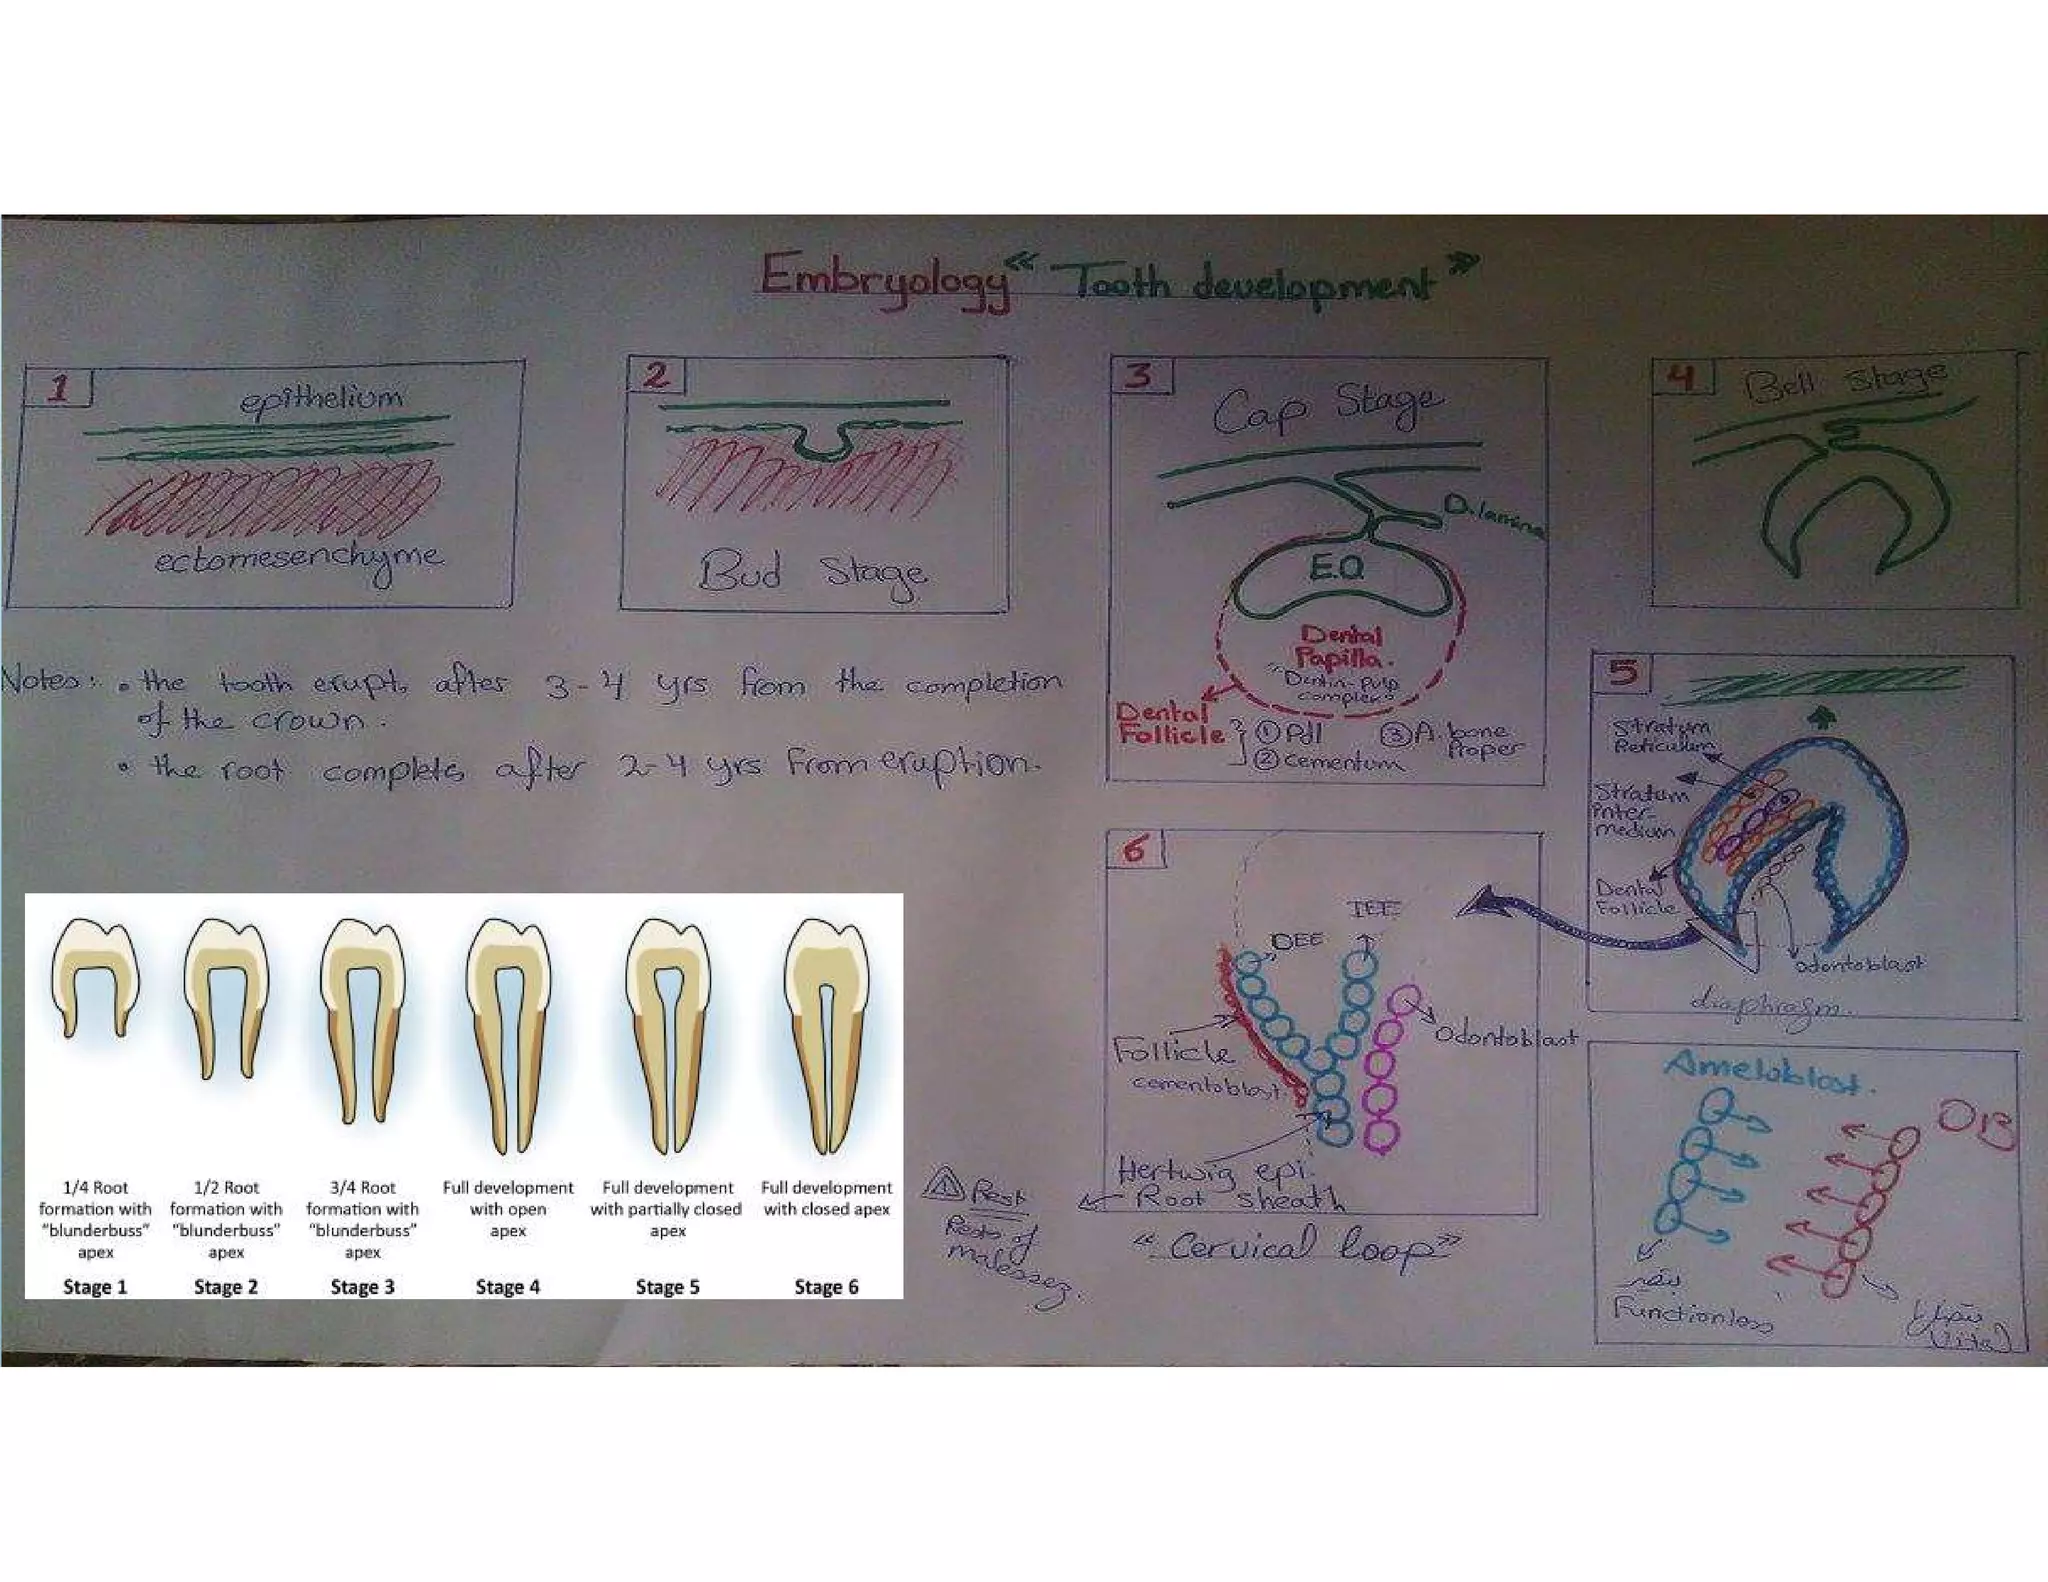 Embryology “Tooth development”
1
epithelium
ectomesenchyme
2
Bud Stage
3
Cap Stage
D.lamina
E.O
Dental
Papilla.
"Dentin-pulp
complex"
Dental
Follicle
① Pdl
② cementum
③ A. bone
Proper
4
Bell Stage
Notes: • the tooth erupts after 3-4 yrs from the completion
of the crown.
• the root completes after 2-4 yrs From eruption.
5
Stratum
Reticulum
Stratum
inter-
medium
Dental
Follicle
odontoblast
diaphragm.
6
IEE
OEE
Odontoblast
Follicle
cementoblast.
Hertwig epi.
Root sheath
"Cervical loop"
Rest
Rests of
malessez.
Ameloblast.
OB
Functionless
Vital
1/4 Root
formation with
"blunderbuss"
apex
Stage 1
1/2 Root
formation with
"blunderbuss"
apex
Stage 2
3/4 Root
formation with
"blunderbuss"
apex
Stage 3
Full development
with open
apex
Stage 4
Full development
with partially closed
apex
Stage 5
Full development
with closed apex
Stage 6